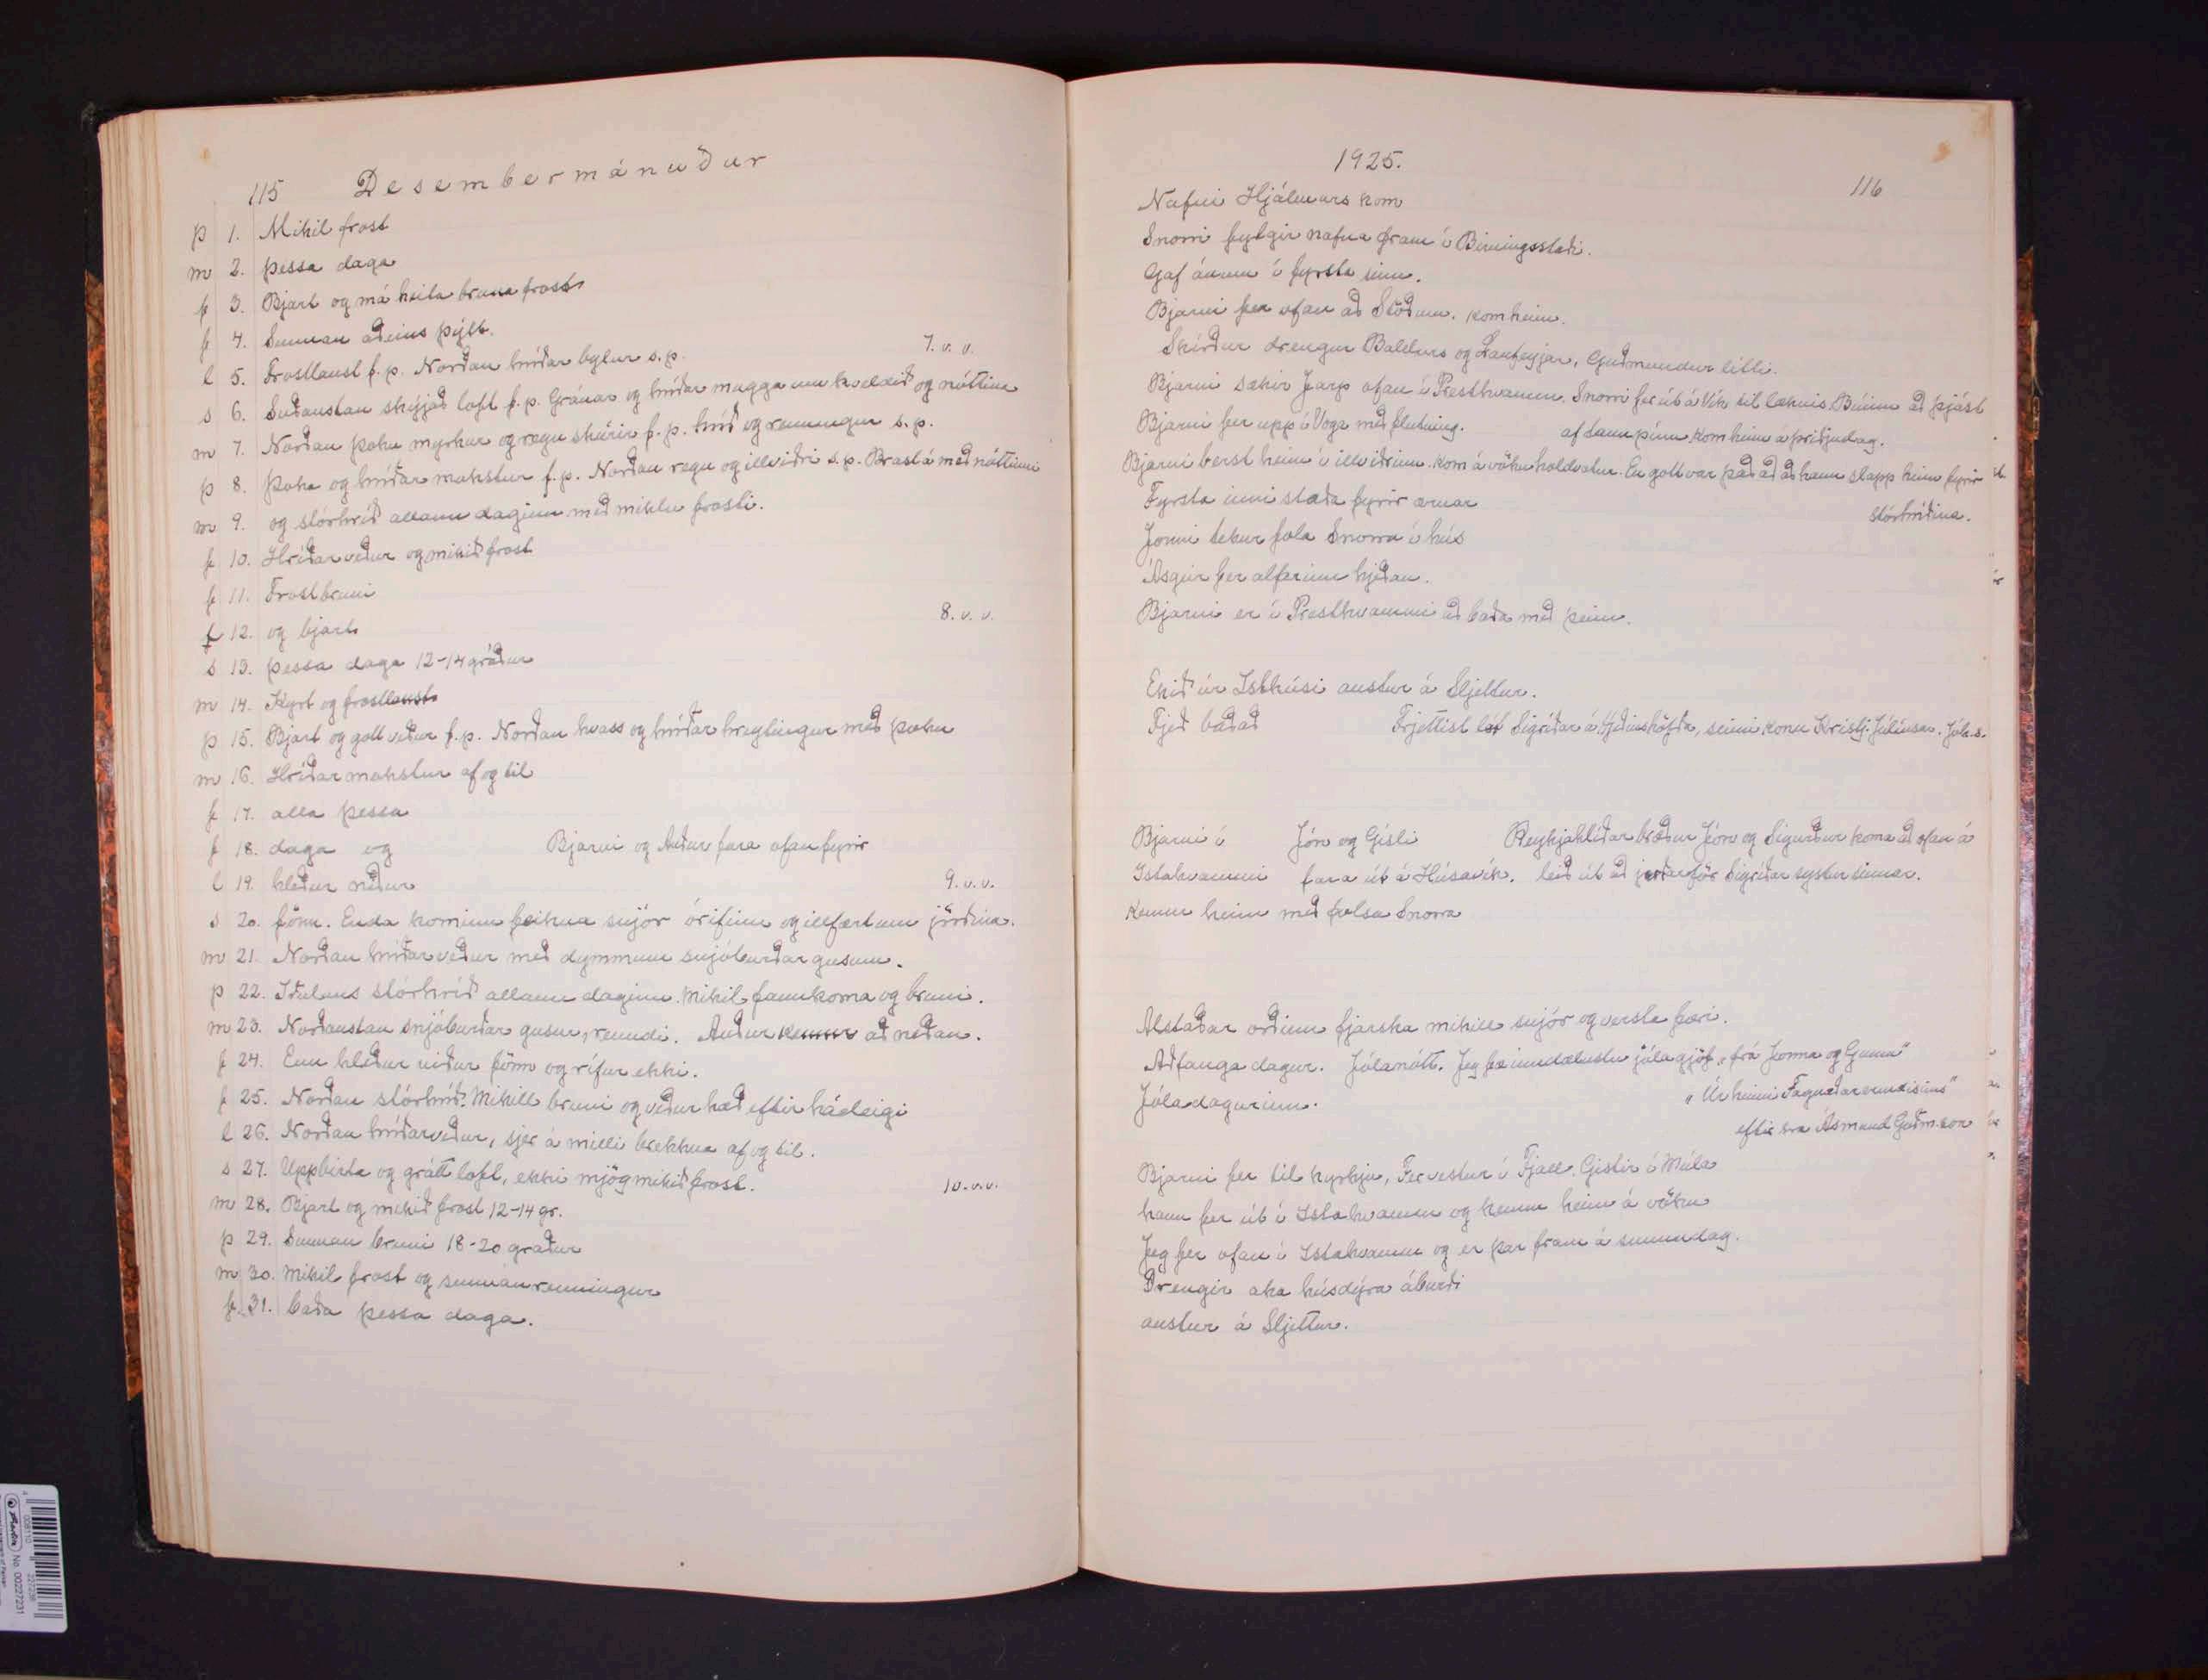 115 Desembermánuður
þ 1. Mikil frost
m 2. þessa daga
f 3. Bjart og má heita bruna frost
f 4. Sunnan aðeins þýtt.
l 5. Frostlaust f.p. Norðan hríðar bylur s.p. 7. v. v.
s 6. Suðaustan skýjað loft f.p. Gránar og hríðar mugga um kveldið og nóttina
m 7. Norðan þoku myrkur og regn skúrir f.p. hríð og renningur s.p.
þ 8. þoka og hríðar mokstur f.p. Norðan regn og illviðri s.p. Brast á með nóttinni
m 9. og stórhríð allann daginn með miklu frosti.
f 10. Hríðar veður og mikið frost
f 11. Frostbruni
f 12. og bjart 8. v. v.
s 13. þessa daga 12-14 gráður
m 14. Kyrt og frostlaust
þ 15. Bjart og gott veður f.p. Norðan hvass og hríðar hreytingur með þoku
m 16. Hríðar mokstur af og til
f 17. alla þessa
f 18. daga og Bjarni og Auður fara ofan fyrir
l 19. hleður niður 9. v. v.
s 20. fönn. Enda kominn feikna snjór órifinn og illfært um jörðina.
m 21. Norðan hríðarveður með dymmum snjóburðar gusum.
þ 22. Iðulaus stórhríð allann daginn. Mikil fannkoma og bruni.
m 23. Norðaustan snjóburðar gusur, renndi. Auður kemur að neðan.
f 24. Enn hleður niður fönn og rífur ekki.
f 25. Norðan stórhríð. Mikill bruni og veður hæð eftir hádeigi
l 26. Norðan hríðarveður, sjer á milli brekkna af og til.
s 27. Uppbirta og grátt loft, ekki mjög mikið frost. 10. v. v.
m 28. Bjart og mikið frost 12-14 gr.
þ 29. Sunnan bruni 18-20 graður
m 30. Mikil frost og sunnanrenningur
f. 31. baða þessa daga.
1925.
116
Nafni Hjálmars kom
Snorri fylgir nafna fram í Birningsstaði.
Gaf ánum í fyrsta sinn.
Bjarni fer ofan að Stöðum. kom heim.
Skírður drengur Baldurs og Laufeyjar, Guðmundur litli.
Bjarni sækir Jarp ofan í Presthvamm. Snorri fer út á Vík til læknis. Búinn að þjást
Bjarni fer upp í Voga með flutning. af tannpínu kom heim á þriðjudag.
Bjarni berst heim í illviðrinu. kom á vöku holdvotur. En gott var það að að hann slapp heim fyrir
Fyrsta inni staða fyrir ærnar stórhríðina.
Jonni tekur fola Snorra í hús
Ásgeir fer alfarinn hjeðan.
Bjarni er í Presthvammi að baða með þeim.
Ekið úr Isthúsi austur á Sljettur.
Fjeð baðað Frjettist lát Sigríðar á Hjeðinshöfða, seinni konu Kristj. Júlíusar. Jóh.s.
Bjarni í Jón og Gísli Reykjahlíðar bræður Jón og Sigurður koma að ofan á
Ystahvammi fara út á Húsavík. leið út að jarðarför Sigríðar systur sinnar.
Kemur heim með Snorra
Alstaðar orðinn fjarska mikill snjór og versta færi.
Aðfanga dagur. Jólanótt. Jeg fæ inndælustu jólagjöf, frá Jonna og Gunnu"
Jóladagurinn. "Úr heimi Fagnaðarerindisins"
eftir sra Ásmund Guðm.son
Bjarni fer til kyrkju, Fer vestur í Fjall. Gistir í Múla
hann fer út í Ystahvamm og kemur heim á vöku
Jeg fer ofan í Ystahvamm og er þar fram á sunnudag.
Drengir aka húsdýra áburði
austur á Sljettur.